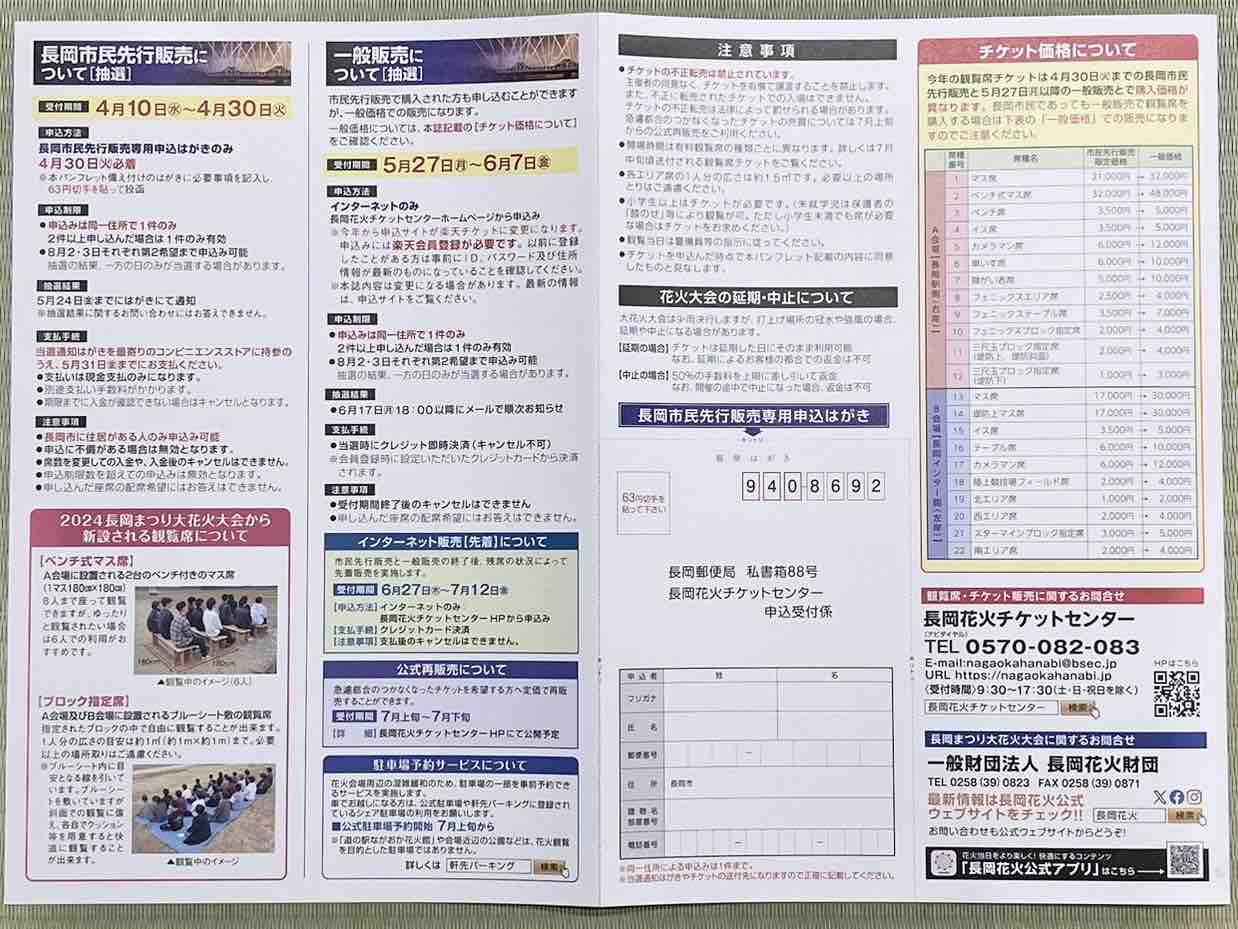 長岡市民先行販売に
ついて[抽選]
受付期間 4月10日㊌～4月30日㊋
申込方法
長岡市民先行販売専用申込はがきのみ
4月30日㊋必着
※本パンフレット備え付けのはがきに必要事項を記入し、
63円切手を貼って投函
申込制限
●申込みは同一住所で1件のみ
2件以上申し込んだ場合は1件のみ有効
●8月2・3日それぞれ第2希望まで申込み可能
抽選の結果、一方の日のみが当選する場合があります。
抽選結果
5月24日㊎までにはがきにて通知
※抽選結果に関するお問い合わせにはお答えできません。
支払手続
当選通知はがきを最寄りのコンビニエンスストアに持参の
うえ、5月31日㊎までにお支払ください。
●支払いは現金支払のみになります。
●別途支払い手数料がかかります。
●期限までに入金が確認できない場合はキャンセルとなります。
注意事項
●長岡市に住居がある人のみ申込み可能
●申込に不備がある場合は無効となります。
●席数を変更しての入金や、入金後のキャンセルはできません。
●申込制限数を超えての申込みは無効となります。
●申し込んだ座席の配席希望にはお答えできません。
2024長岡まつり大花火大会から
新設される観覧席について
【ベンチ式マス席】
A会場に設置される2台のベンチ付きのマス席
(1マス180㎝×180㎝)
8人まで座って観覧
できますが、ゆったり
と観覧されたい場合
は6人での利用がお
すすめです。
180cm
180cm
▲観覧中のイメージ(6人)
【ブロック指定席】
A会場及びB会場に設置されるブルーシート敷の観覧席
指定されたブロックの中で自由に観覧することが出来ます。
1人分の広さの目安は約1㎡(約1m×約1m)まで。必要
以上の場所取りはご遠慮ください。
※ブルーシート内に目
安となる線を引いて
います。ブルーシー
トを敷いていますが
斜面での観覧に備
え、各自でクッション
等を用意すると快
適に観覧すること
が出来ます。
▲観覧中のイメージ
一般販売に
ついて[抽選]
市民先行販売で購入された方も申し込むことができます
が、一般価格での販売になります。
一般価格については、本誌記載の【チケット価格について】
をご確認ください。
受付期間 5月27日㊊～6月7日㊎
申込方法
インターネットのみ
長岡花火チケットセンターホームページから申込み
※今年から申込サイトが楽天チケットに変更になります。
申込みには楽天会員登録が必要です。以前に登録
したことがある方は事前にID、パスワード及び住所
情報が最新のものになっていることを確認してください。
※本誌内容は変更になる場合があります。最新の情報
は、申込サイトをご覧ください。
申込制限
●申込みは同一住所で1件のみ
2件以上申し込んだ場合は1件のみ有効
●8月2・3日それぞれ第2希望まで申込み可能
抽選の結果、一方の日のみが当選する場合があります。
抽選結果
●6月17日㊊18：00以降にメールで順次お知らせ
支払手続
●当選時にクレジット即時決済(キャンセル不可)
※会員登録時に設定いただいたクレジットカードから決済
されます。
注意事項
●受付期間終了後のキャンセルはできません
●申し込んだ座席の配席希望にはお答えできません。
インターネット販売【先着】について
市民先行販売と一般販売の終了後、残席の状況によって
先着販売を実施します。
受付期間 6月27日㊍～7月12日㊎
【申込方法】インターネットのみ：
長岡花火チケットセンターHPから申込み
【支払手続】クレジットカード決済
【注意事項】支払後のキャンセルはできません。
公式再販売について
急遽都合のつかなくなったチケットを希望する方へ定価で再販
売することができます。
受付期間 7月上旬～7月下旬
【詳 細】長岡花火チケットセンターHPにて公開予定
駐車場予約サービスについて
花火会場周辺の混雑緩和のため、駐車場の一部を事前予約でき
るサービスを実施します。
車でお越しになる方は、公式駐車場や軒先パーキングに登録され
ているシェア駐車場の利用をお願いします。
■公式駐車場予約開始 7月上旬から
※「道の駅ながおか花火館」や会場近辺の公園などは、花火観覧
を目的とした駐車場ではありません。
詳しくは 軒先パーキング 検索
注意事項
●チケットの不正転売は禁止されています。
主催者の同意なく、チケットを有償で譲渡することを禁止します。
また、不正に転売されたチケットでの入場はできません。
チケットの不正転売は法律によって罰せられる場合があります。
急遽都合のつかなくなったチケットの売買については7月上旬
からの公式再販売をご利用ください。
●開場時間は有料観覧席の種類ごとに異なります。詳しくは7月
中旬頃送付される観覧席チケットをご覧ください。
●各エリア席の1人分の広さは約1.5㎡です。必要以上の場所
とりはご遠慮ください。
●小学生以上はチケットが必要です。(未就学児は保護者の
「膝のせ」等により観覧が可。ただし小学生未満でも席が必要
な場合はチケットをお求めください。)
●観覧当日は警備員等の指示に従ってください。
●チケットを申込んだ時点で本パンフレット記載の内容に同意
したものと見なします。
花火大会の延期・中止について
大花火大会は少雨決行しますが、打上げ場所の冠水や強風の場合、
延期や中止になる場合があります。
【延期の場合】チケットは延期した日にそのまま利用可能
なお、延期によるお客様の都合での返金は不可
【中止の場合】50%の手数料を上限に差し引いて返金
なお、開催の途中で中止になった場合、返金は不可
長岡市民先行販売専用申込はがき
キリトリ
郵便はがき
63円切手を
貼って下さい
940-8692
長岡郵便局 私書箱88号
長岡花火チケットセンター
申込受付係
申込者 姓 名
フリガナ
氏 名
郵便番号 －
住 所 長岡市
建物名
部屋番号
電話番号 － －
※同一住所による申込みは1件まで。
※当選通知はがきやチケットの送付先になりますので正確に記載してください。
チケット価格について
今年の観覧席チケットは4月30日㊋までの長岡市民
先行販売と5月27日㊊以降の一般販売とで購入価格が
異なります。長岡市民であっても一般販売で観覧席を
購入する場合は下表の「一般価格」での販売になりま
すのでご注意ください。
席種番号 席種名 市民先行販売限定価格 一般価格
A会場【長岡駅側(右岸)】
1 マス席 21,000円 → 32,000円
2 ベンチ式マス席 32,000円 → 48,000円
3 ベンチ席 3,500円 → 5,000円
4 イス席 3,500円 → 5,000円
5 カメラマン席 6,000円 → 12,000円
6 車いす席 6,000円 → 10,000円
7 障がい者席 5,000円 → 10,000円
8 フェニックスエリア席 2,500円 → 4,000円
9 フェニックステーブル席 3,500円 → 7,000円
10 フェニックスブロック指定席 2,000円 → 4,000円
11 三尺玉ブロック指定席(堤防上、堤防斜面) 2,000円 → 4,000円
12 三尺玉ブロック指定席(堤防下) 1,000円 → 3,000円
B会場【長岡インター側(左岸)】
13 マス席 17,000円 → 30,000円
14 堤防上マス席 17,000円 → 30,000円
15 イス席 3,500円 → 5,000円
16 テーブル席 6,000円 → 10,000円
17 カメラマン席 6,000円 → 12,000円
18 陸上競技場フィールド席 2,000円 → 4,000円
19 北エリア席 1,000円 → 2,000円
20 西エリア席 2,000円 → 4,000円
21 スターマインブロック指定席 3,000円 → 5,000円
22 南エリア席 2,000円 → 4,000円
観覧席・チケット販売に関するお問合せ
長岡花火チケットセンター
(ナビダイヤル)
TEL 0570-082-083
E-mail:nagaokahanabi@bsec.jp
URL https://nagaokahanabi.jp
〈受付時間〉9:30～17:30(土・日・祝日を除く)
HPはこちら
長岡花火チケットセンター 検索
長岡まつり大花火大会に関するお問合せ
一般財団法人 長岡花火財団
TEL 0258(39)0823 FAX 0258(39)0871
最新情報は長岡花火公式
ウェブサイトをチェック!!
長岡花火 検索
お問い合わせも公式ウェブサイトからどうぞ!
花火当日をより楽しく!快適にするコンテンツ
「長岡花火公式アプリ」はこちら